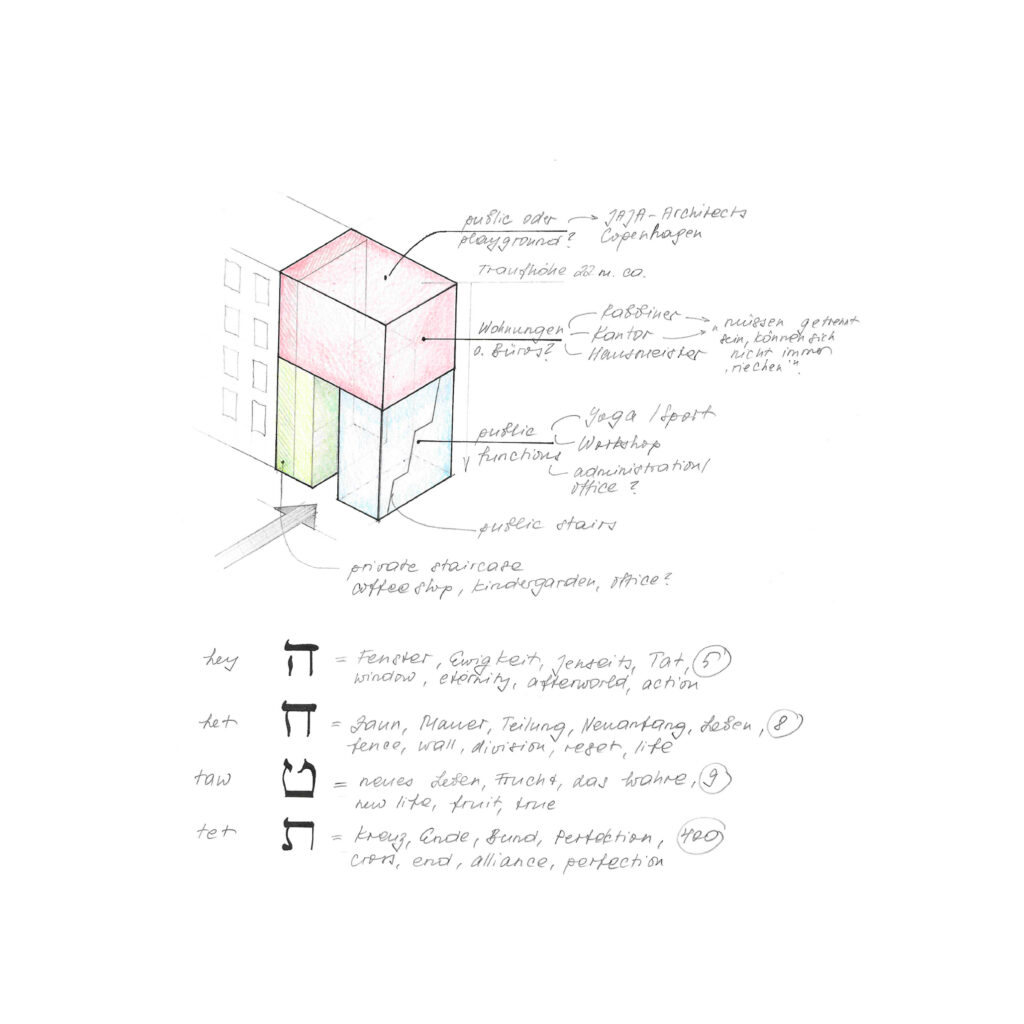 public oder → JAJA-Architects
playground? Copenhagen
Traufhöhe 22 m. ca.
Wohnungen
o. Büros?
Rabbiner
Kantor
Hausmeister
"müssen getrennt
sein, können sich
nicht immer
'riechen'"
public
functions
Yoga / Sport
Workshop
administration/
office?
public stairs
private staircase
coffee shop, kindergarden, office?
hey ה = Fenster, Ewigkeit, Jenseits, Tat, 5
window, eternity, afterworld, action
het ח = Zaun, Mauer, Teilung, Neuanfang, Leben, 8
fence, wall, division, reset, life
taw ט = neues Leben, Frucht, das Wahre, 9
new life, fruit, true
tet ת = Kreuz, Ende, Bund, Perfection, 400
cross, end, alliance, perfection